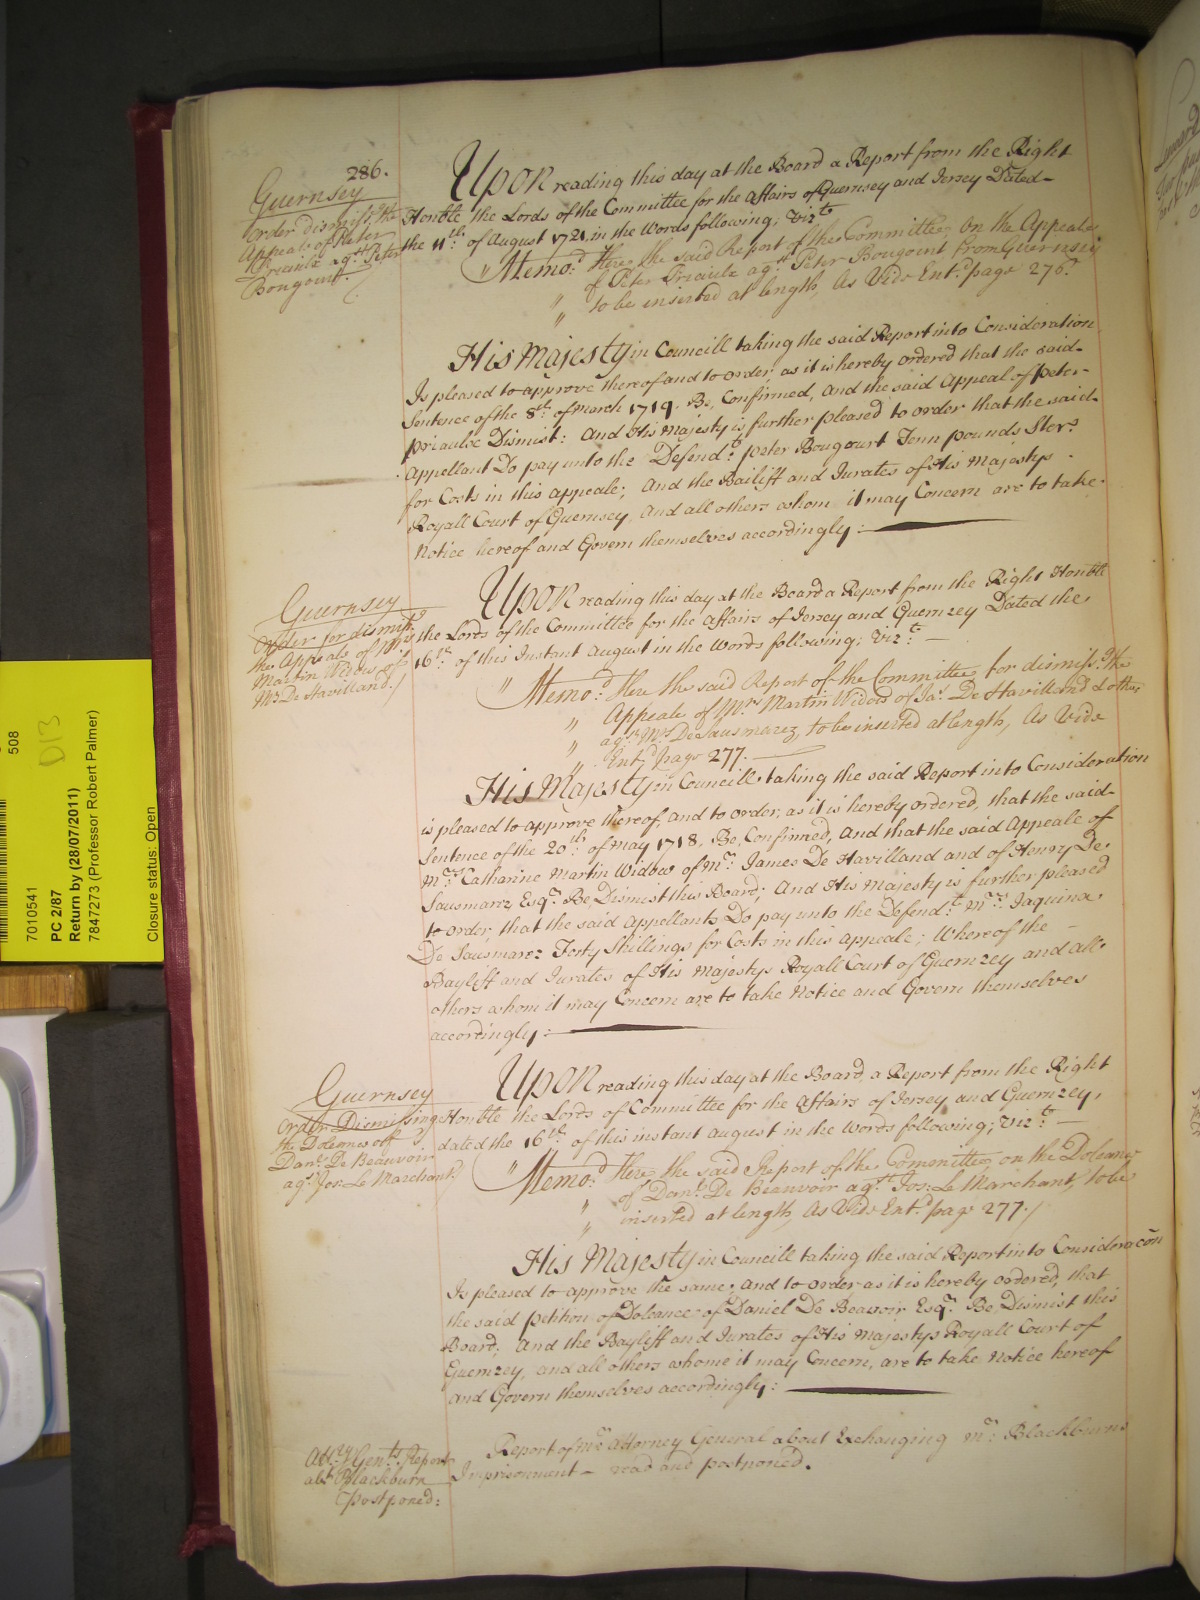 286.
Guernsey
Order dismiss:g the
Appeale of Peter
Priaulx agst Peter
Bougourt.
Upon reading this day at the Board a Report from the Right
Honble the Lords of the Committee for the Affairs of Guernsey and Jersey Dated
the 11th of August 1721, in the Words following; Vizt
Memo:d Here the said Report of the Committee, on the Appeale
of Peter Priaulx agst Peter Bougourt from Guernsey
to be inserted at length, As Vide Ent:d page 276.
His Majesty in Councill taking the said Report into Consideration
Is pleased to approve thereof and to order, as it is hereby ordered that the said
Sentence of the 8th of March 1719. Be, Confirmed, And the said Appeal of Peter
Priaulx Dismist: And His Majesty is further pleased to order that the said
Appellant Do pay unto the Defendt Peter Bougourt Tenn pounds Sterg
for Costs in this appeale; And the Bailiff and Jurates of His Majestys
Royall Court of Guernsey, And all others whom it may Concern are to take
Notice hereof and Govern themselves accordingly:
Guernsey
Order for dismiss:g
the Appeale of Mrs
Martin Widow of
Mr De Havilland./
Upon reading this day at the Board a Report from the Right Honble
the Lords of the Committee for the Affairs of Jersey and Guernzey Dated the
16th of this Instant August in the Words following; Vizt
Memo:d Here the said Report of the Committee for dismiss:g the
Appeale of Mrs Martin Widow of Jas De Havilland & others
agst Mrs De Sausmarez, to be inserted at length, As Vide
Ent:d page 277.
His Majesty in Councill taking the said Report into Consideration
is pleased to approve thereof, and to order, as it is hereby ordered, that the said
Sentence of the 20th of May 1718, Be, Confirmed, And that the said Appeale of
Mrs Catharine Martin Widow of Mr James De Havilland and of Henry De
Sausmarez Esqr Be Dismist this Board; And His Majesty is further pleased
to order, that the said Appellants Do pay unto the Defendt Mrs Jaquina
De Sausmarez Forty Shillings for Costs in this appeale; Whereof the
Bayliff and Jurates of His Majestys Royall Court of Guernzey and all
others whom it may Concern are to take Notice and Govern themselves
accordingly:
Guernsey
Order Dismissing
the Doleance off
Danl De Beauvoir
agst Jos: Le Marchant.
Upon reading this day at the Board, a Report from the Right
Honble the Lords of Committee for the Affairs of Jersey and Guernzey,
dated the 16th of this instant August in the Words following; Vizt
Memo:d Here, the said Report of the Committee, on the Doleance
of Danl De Beauvoir agst Jos: Le Marchant, to be
inserted at length, As Vide Ent:d page 277./
His Majesty in Councill taking the said Report into Consideracon
Is pleased to approve the same, and to order as it is hereby ordered, that
the said petition of Doleance of Daniel De Beavoir Esqr Be, Dismist this
Board; And the Bayliff and Jurates of His Majestys Royall Court of
Guernzey, and all others whome it may Concern, are to take Notice hereof
and Govern themselves accordingly:
Att:ry Gen:ls Report
abt Blackburn
postponed:
Report of Mr Attorney General about Exchanging Mr Blackburns
Imprisonment - read and postponed.
508
D13
7010541
PC 2/87
Return by (28/07/2011)
7847273 (Professor Robert Palmer)
Closure status: Open